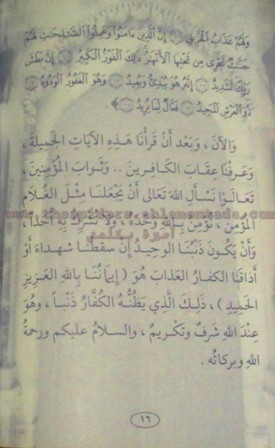 وَلَهُمْ عَذَابُ ٱلْحَرِيقِ ۝ إِنَّ ٱلَّذِينَ ءَامَنُوا۟ وَعَمِلُوا۟ ٱلصَّٰلِحَٰتِ لَهُمْ
جَنَّٰتٌ تَجْرِى مِن تَحْتِهَا ٱلْأَنْهَٰرُ ذَٰلِكَ ٱلْفَوْزُ ٱلْكَبِيرُ ۝ إِنَّ بَطْشَ
رَبِّكَ لَشَدِيدٌ ۝ إِنَّهُۥ هُوَ يُبْدِئُ وَيُعِيدُ ۝ وَهُوَ ٱلْغَفُورُ ٱلْوَدُودُ ۝
ذُو ٱلْعَرْشِ ٱلْمَجِيدُ ۝ فَعَّالٌ لِّمَا يُرِيدُ ۝
وَالآنَ، وَبَعْدَ أَنْ قَرَأْنَا هَذِهِ الآيَاتِ الجَمِيلَةَ،
وَعَرَفْنَا عِقَابَ الكَافِرِينَ .. وَثَوَابَ المُؤْمِنِينَ،
تَعَالَوْا نَسْأَلِ اللهَ تَعَالَى أَنْ يَجْعَلَنَا مِثْلَ الغُلَامِ
المُؤْمِنِ، نُؤْمِنُ بِاللهِ وَحْدَهُ، وَلَا نُشْرِكُ بِهِ أَحَدًا،
وَأَنْ يَكُونَ ذَنْبُنَا الوَحِيدُ إِنْ سَقَطْنَا شُهَدَاءَ أَوْ
أَذَاقَنَا الكُفَّارُ العَذَابَ هُوَ (إِيمَانُنَا بِاللهِ العَزِيزِ
الحَمِيدِ)، ذَلِكَ الَّذِي يَظُنُّهُ الكُفَّارُ ذَنْبًا، وَهُوَ
عِنْدَ اللهِ شَرَفٌ وَتَكْرِيمٌ، والسلامُ عليكم ورحمةُ
اللهِ وبركاتُه.
١٦